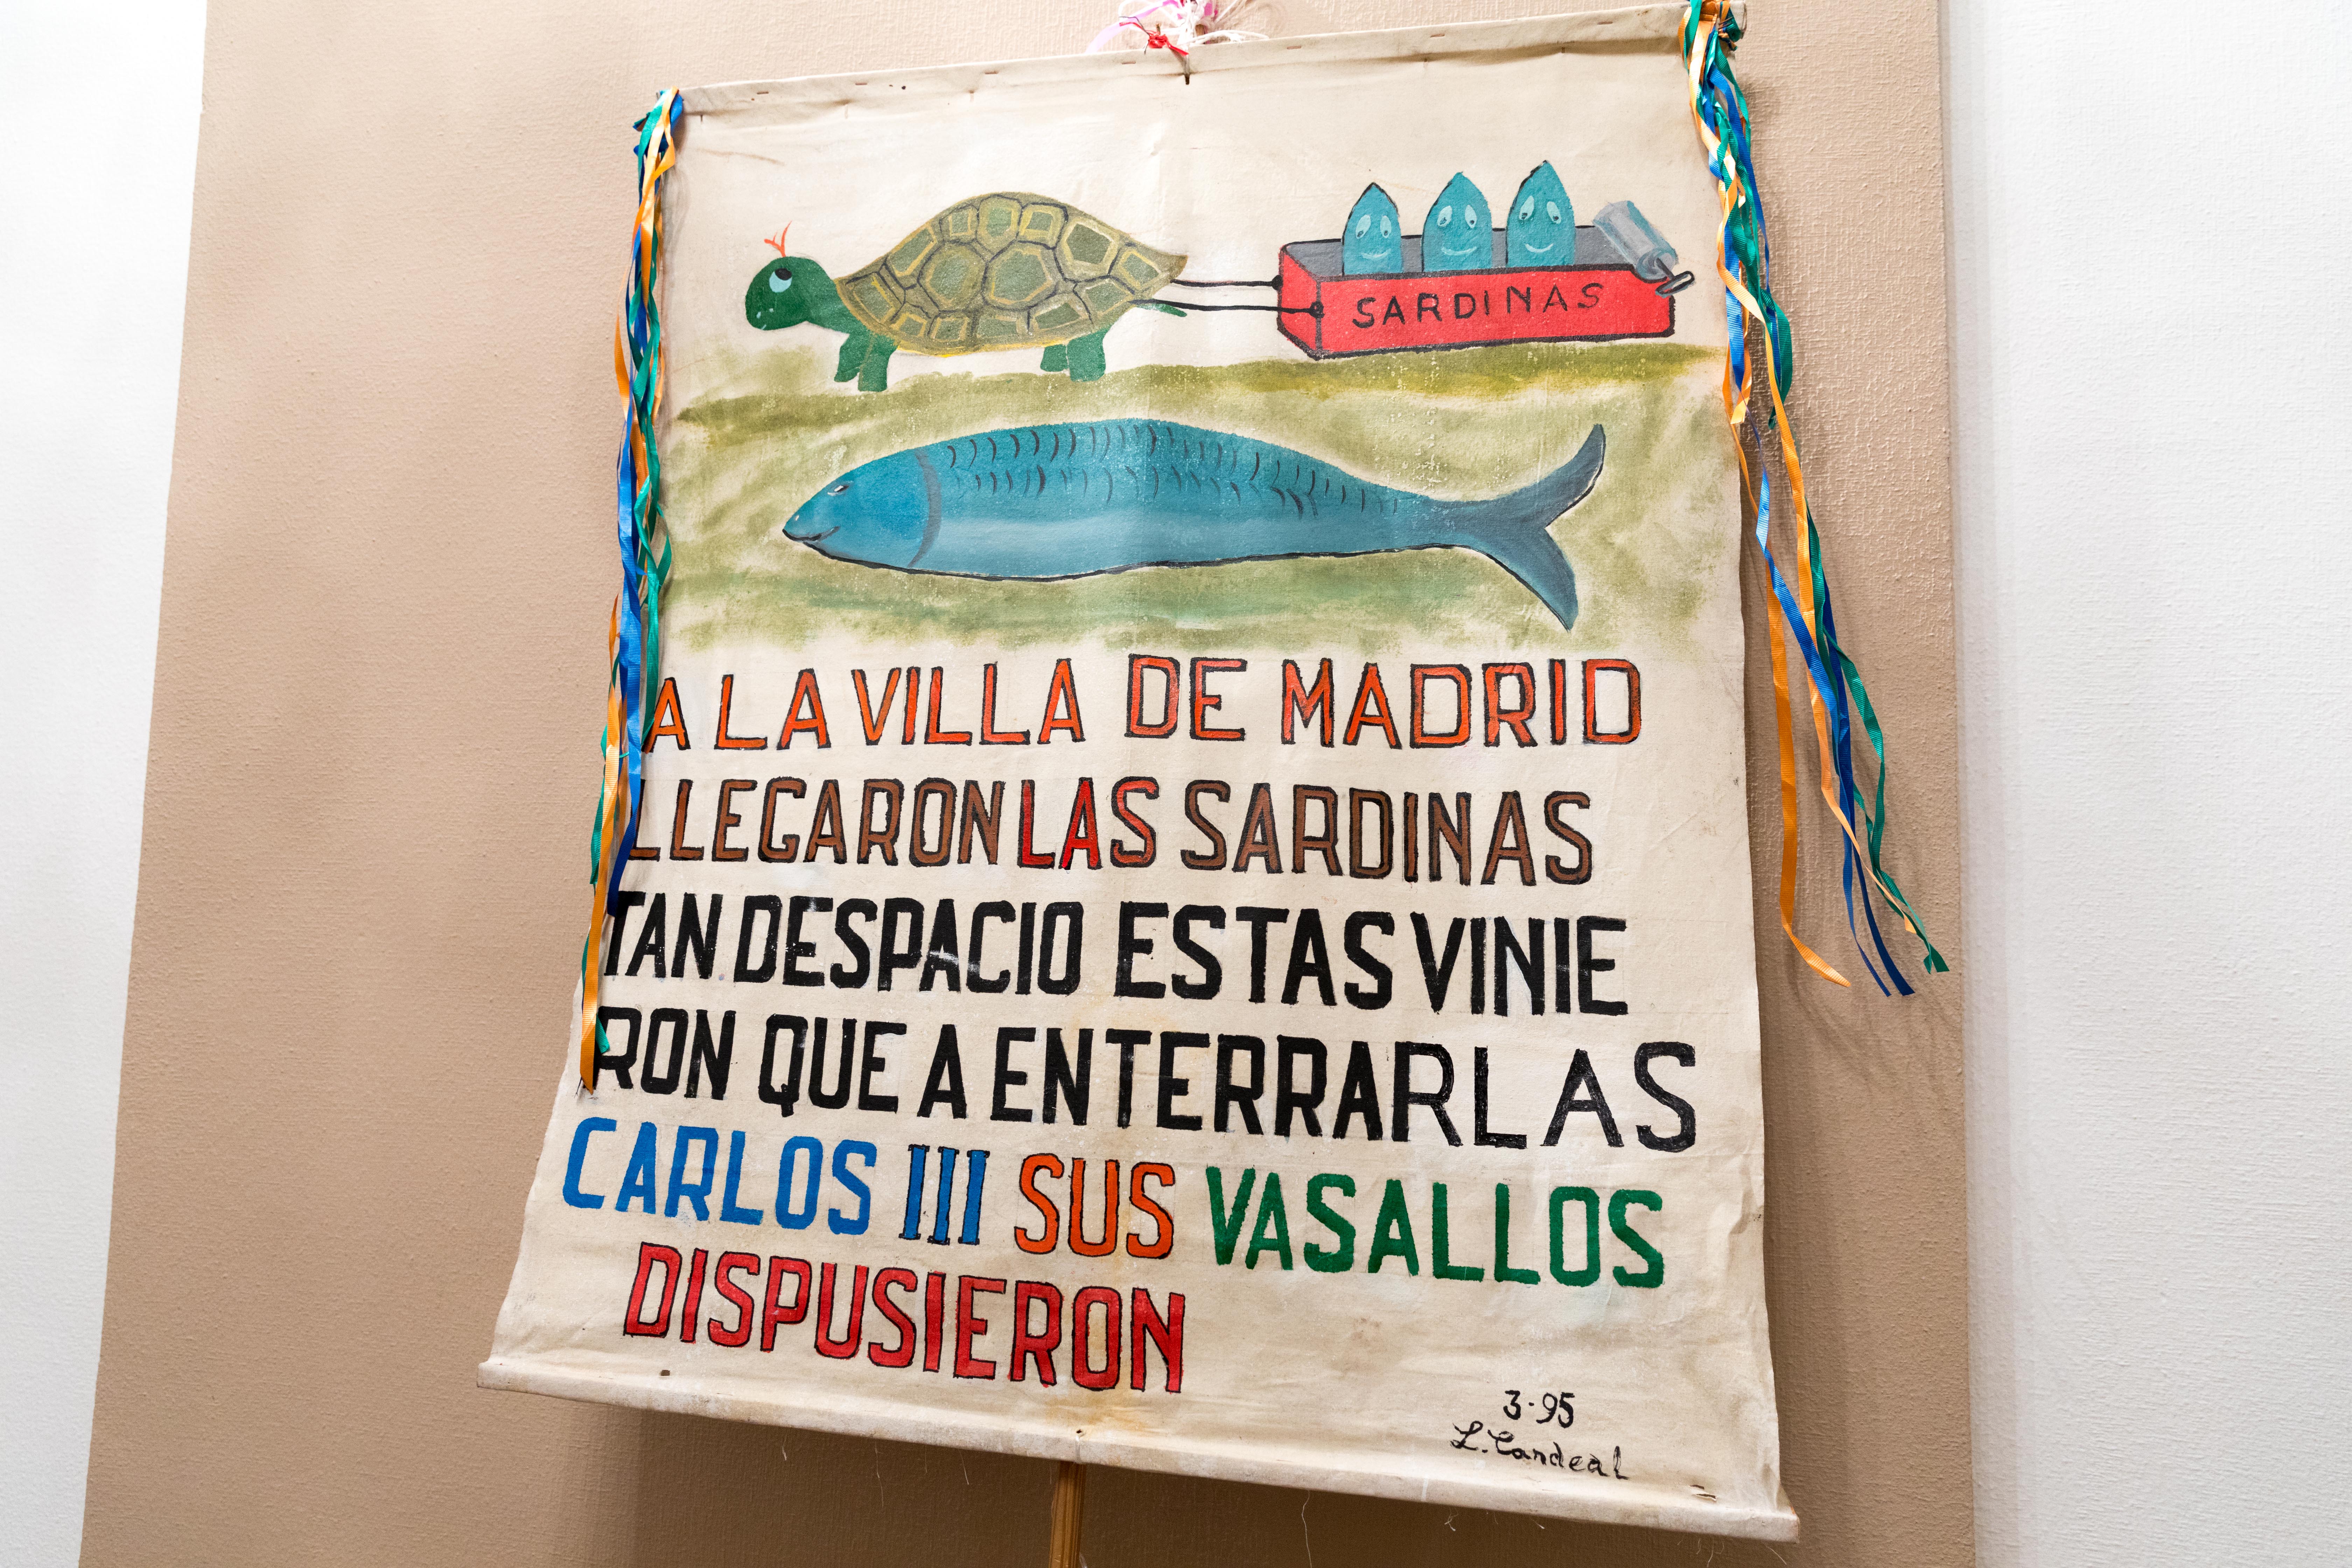 SARDINAS
A LA VILLA DE MADRID
LLEGARON LAS SARDINAS
TAN DESPACIO ESTAS VINIE
RON QUE A ENTERRARLAS
CARLOS III SUS VASALLOS
DISPUSIERON
3-95
L. Candeal